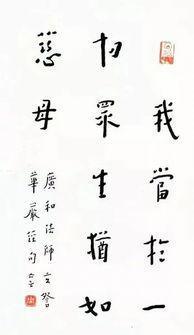 我當於一
切眾生猶如
慈母
廣和法師文誉
華嚴經句